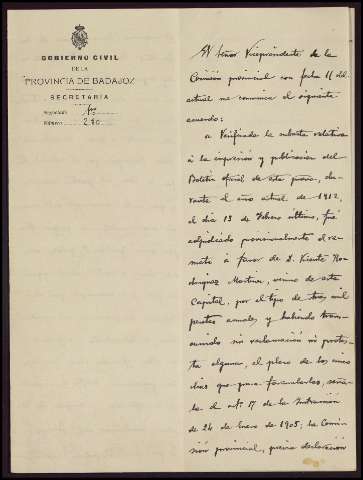 GOBIERNO CIVIL
DE LA
PROVINCIA DE BADAJOZ
SECRETARÍA
Negociado 1º
Número 240
El Señor Vicepresidente de la
Comisión provincial con fecha 11 del
actual me comunica el siguiente
acuerdo:
"Verificada la subasta relativa
á la impresión y publicación del
Boletín oficial de esta prova, du-
rante el año actual de 1912,
el día 13 de Febrero último, fué
adjudicado provisionalmente el re-
mate á favor de D. Vicente Ro-
dríguez Martínez, vecino de esta
Capital, por el tipo de tres mil
pesetas anuales y habiendo trans-
currido sin reclamación ni protes-
ta alguna, el plazo de los cinco
días que para formularlas, seña-
la el Art. 17 de la Instrucción
de 24 de Enero de 1905; la Comi-
sión provincial, previa declaración